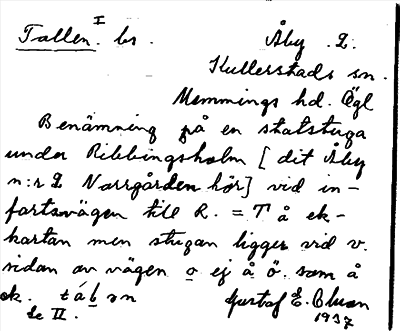 Tallen. I br. Åby 2.
Kullerstads sn.
Memmings hd. Ögl
Benämning på en statstuga
under Ribbingsholm [dit Åby
n:r 2 Norrgården hör] vid in-
fartsvägen till R. = T å ek-
kartan men stugan ligger vid v.
sidan av vägen o ej å ö. som å
ek. tábən Gustaf E. Olson
Se II. 1937